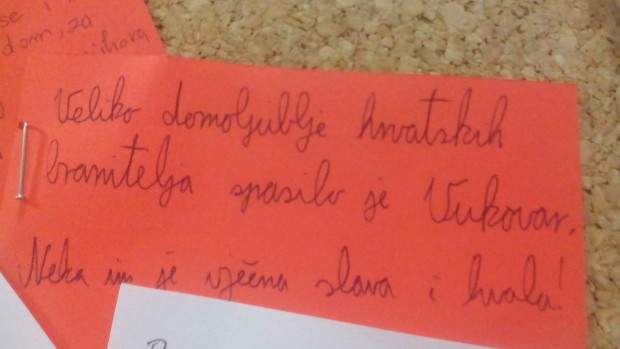 se i
dom, za
njihova
Veliko domoljublje hrvatskih
branitelja spasilo je Vukovar.
Neka im je vječna slava i hvala!